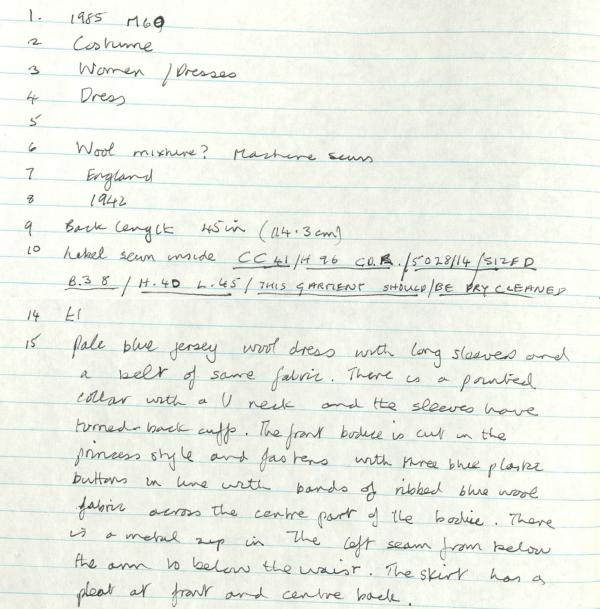 1. 1985 M69
2 Costume
3 Women / Dresses
4 Dress
5
6 Wool mixture? Machine sewn
7 England
8 1942
9 Back length 45in (114.3cm)
10 Label sewn inside CC41/H 96 CO.R./5028/14/SIZED
B.38/H.40 L.45/THIS GARMENT SHOULD/BE DRY CLEANED
14 E1
15 Pale blue jersey wool dress with long sleeves and
a belt of same fabric. There is a pointed
collar with a V neck and the sleeves have
turned-back cuffs. The front bodice is cut in the
princess style and fastens with three blue plastic
buttons in line with bands of ribbed blue wool
fabric across the centre part of the bodice. There
is a metal zip in the left seam from below
the arm to below the waist. The skirt has a
pleat at front and centre back.